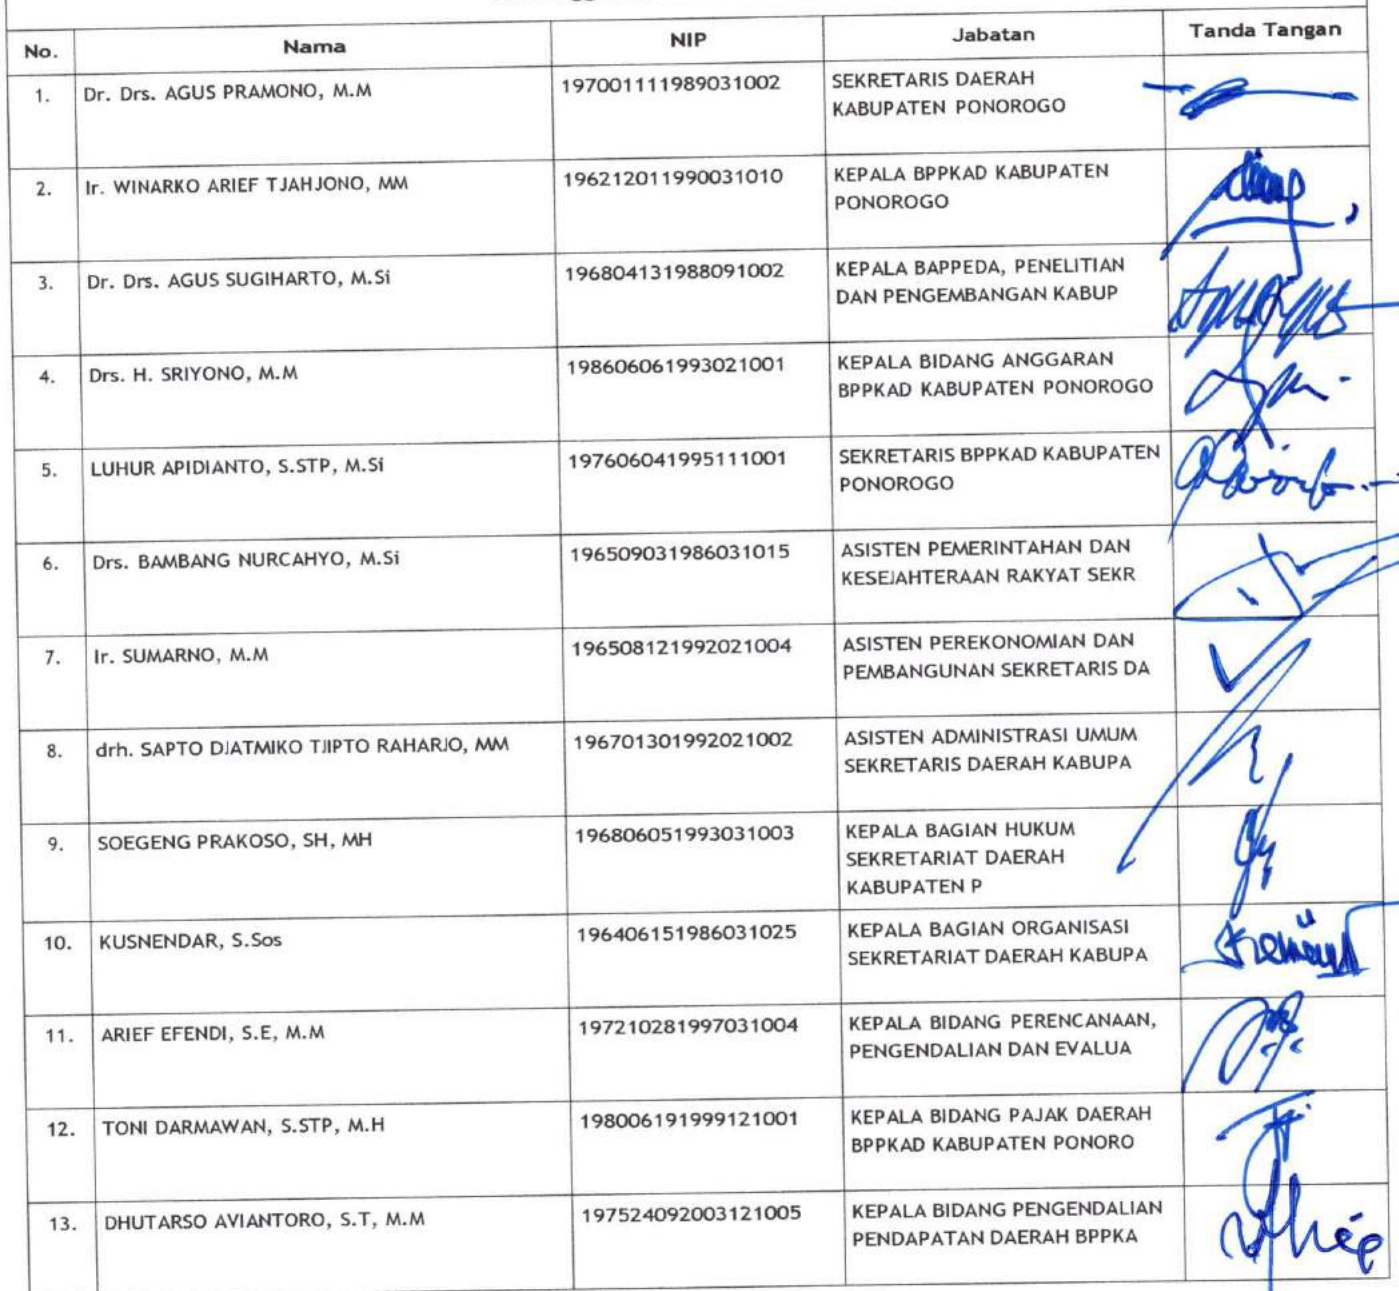 No.
Nama
NIP
Jabatan
Tanda Tangan
1.
Dr. Drs. AGUS PRAMONO, M.M
197001111989031002
SEKRETARIS DAERAH
KABUPATEN PONOROGO
2.
Ir. WINARKO ARIEF TJAHJONO, MM
196212011990031010
KEPALA BPPKAD KABUPATEN
PONOROGO
3.
Dr. Drs. AGUS SUGIHARTO, M.Si
196804131988091002
KEPALA BAPPEDA, PENELITIAN
DAN PENGEMBANGAN KABUP
4.
Drs. H. SRIYONO, M.M
198606061993021001
KEPALA BIDANG ANGGARAN
BPPKAD KABUPATEN PONOROGO
5.
LUHUR APIDIANTO, S.STP, M.Si
197606041995111001
SEKRETARIS BPPKAD KABUPATEN
PONOROGO
6.
Drs. BAMBANG NURCAHYO, M.Si
196509031986031015
ASISTEN PEMERINTAHAN DAN
KESEJAHTERAAN RAKYAT SEKR
7.
Ir. SUMARNO, M.M
196508121992021004
ASISTEN PEREKONOMIAN DAN
PEMBANGUNAN SEKRETARIS DA
8.
drh. SAPTO DJATMIKO TJIPTO RAHARJO, MM
196701301992021002
ASISTEN ADMINISTRASI UMUM
SEKRETARIS DAERAH KABUPA
9.
SOEGENG PRAKOSO, SH, MH
196806051993031003
KEPALA BAGIAN HUKUM
SEKRETARIAT DAERAH
KABUPATEN P
10.
KUSNENDAR, S.Sos
196406151986031025
KEPALA BAGIAN ORGANISASI
SEKRETARIAT DAERAH KABUPA
11.
ARIEF EFENDI, S.E, M.M
197210281997031004
KEPALA BIDANG PERENCANAAN,
PENGENDALIAN DAN EVALUA
12.
TONI DARMAWAN, S.STP, M.H
198006191999121001
KEPALA BIDANG PAJAK DAERAH
BPPKAD KABUPATEN PONORO
13.
DHUTARSO AVIANTORO, S.T, M.M
197524092003121005
KEPALA BIDANG PENGENDALIAN
PENDAPATAN DAERAH BPPKA